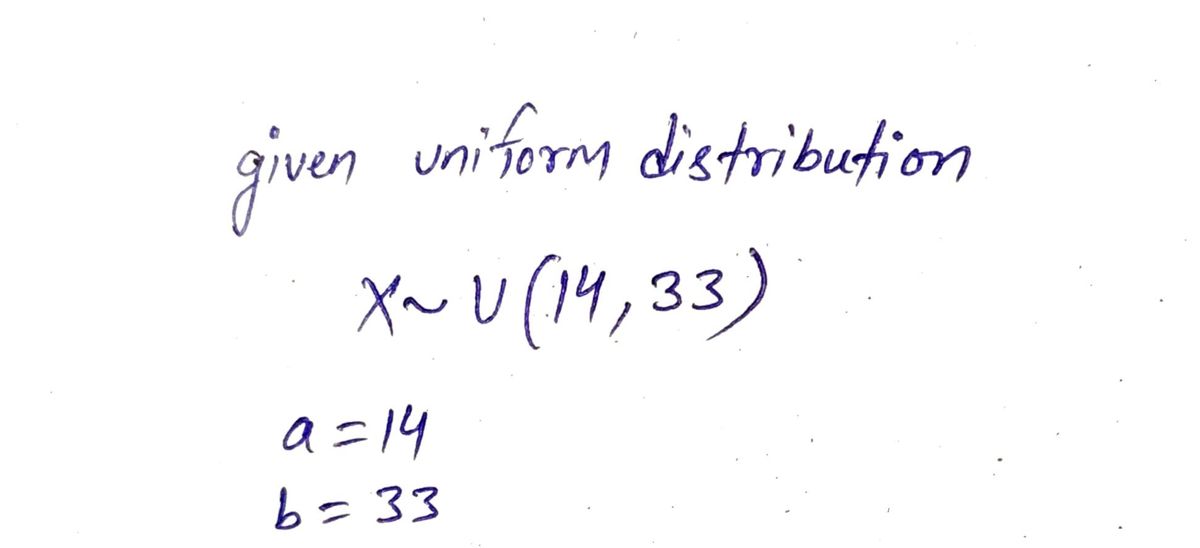 given uniform distribution
X~U(14,33)
a=14
b=33